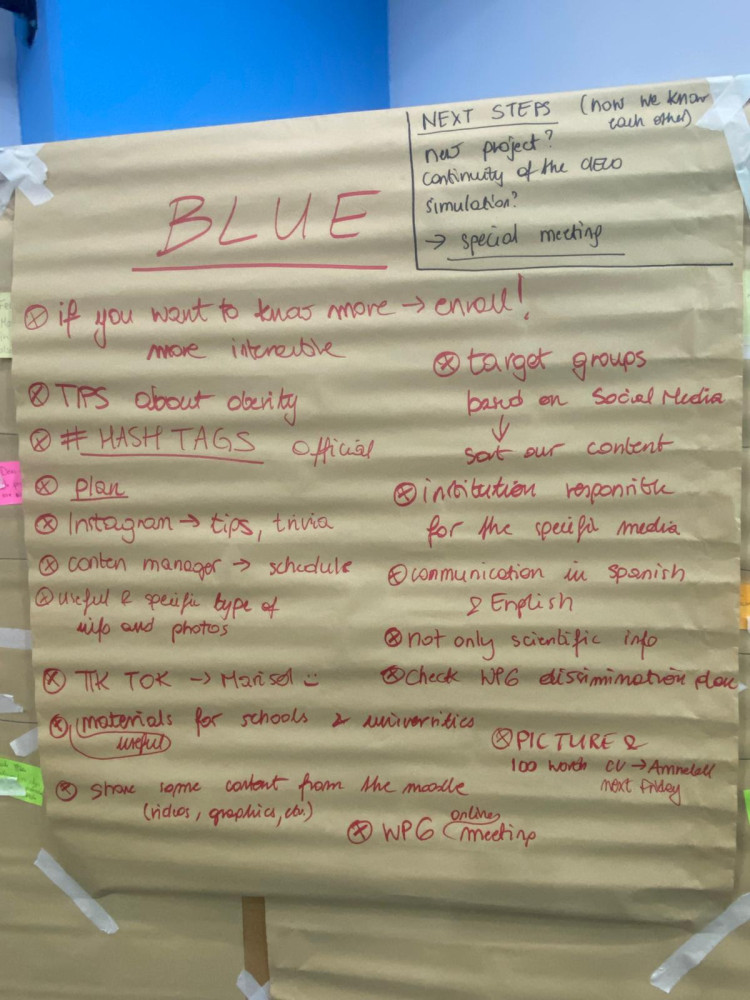 NEXT STEPS (now we know
each other)
new project?
continuity of the
simulation?
→ special meeting
BLUE
if you want to know more → enroll!
more interactible
TIPS about obezity
# HASH TAGS official
plan
Instagram → tips, trivia
conten manager → schedule
useful & specific type of
info and photos
TIK TOK → Marisol
materials for schools & universities
useful
share some content from the moodle
(videos, graphics, etc.)
target groups
based on Social Media
↓
sort our content
institution responsible
for the specific media
communication in Spanish
& English
not only scientific info
check WP6 dissimination plan
PICTURE &
100 worth CV →
next Friday
WP6 online meeting